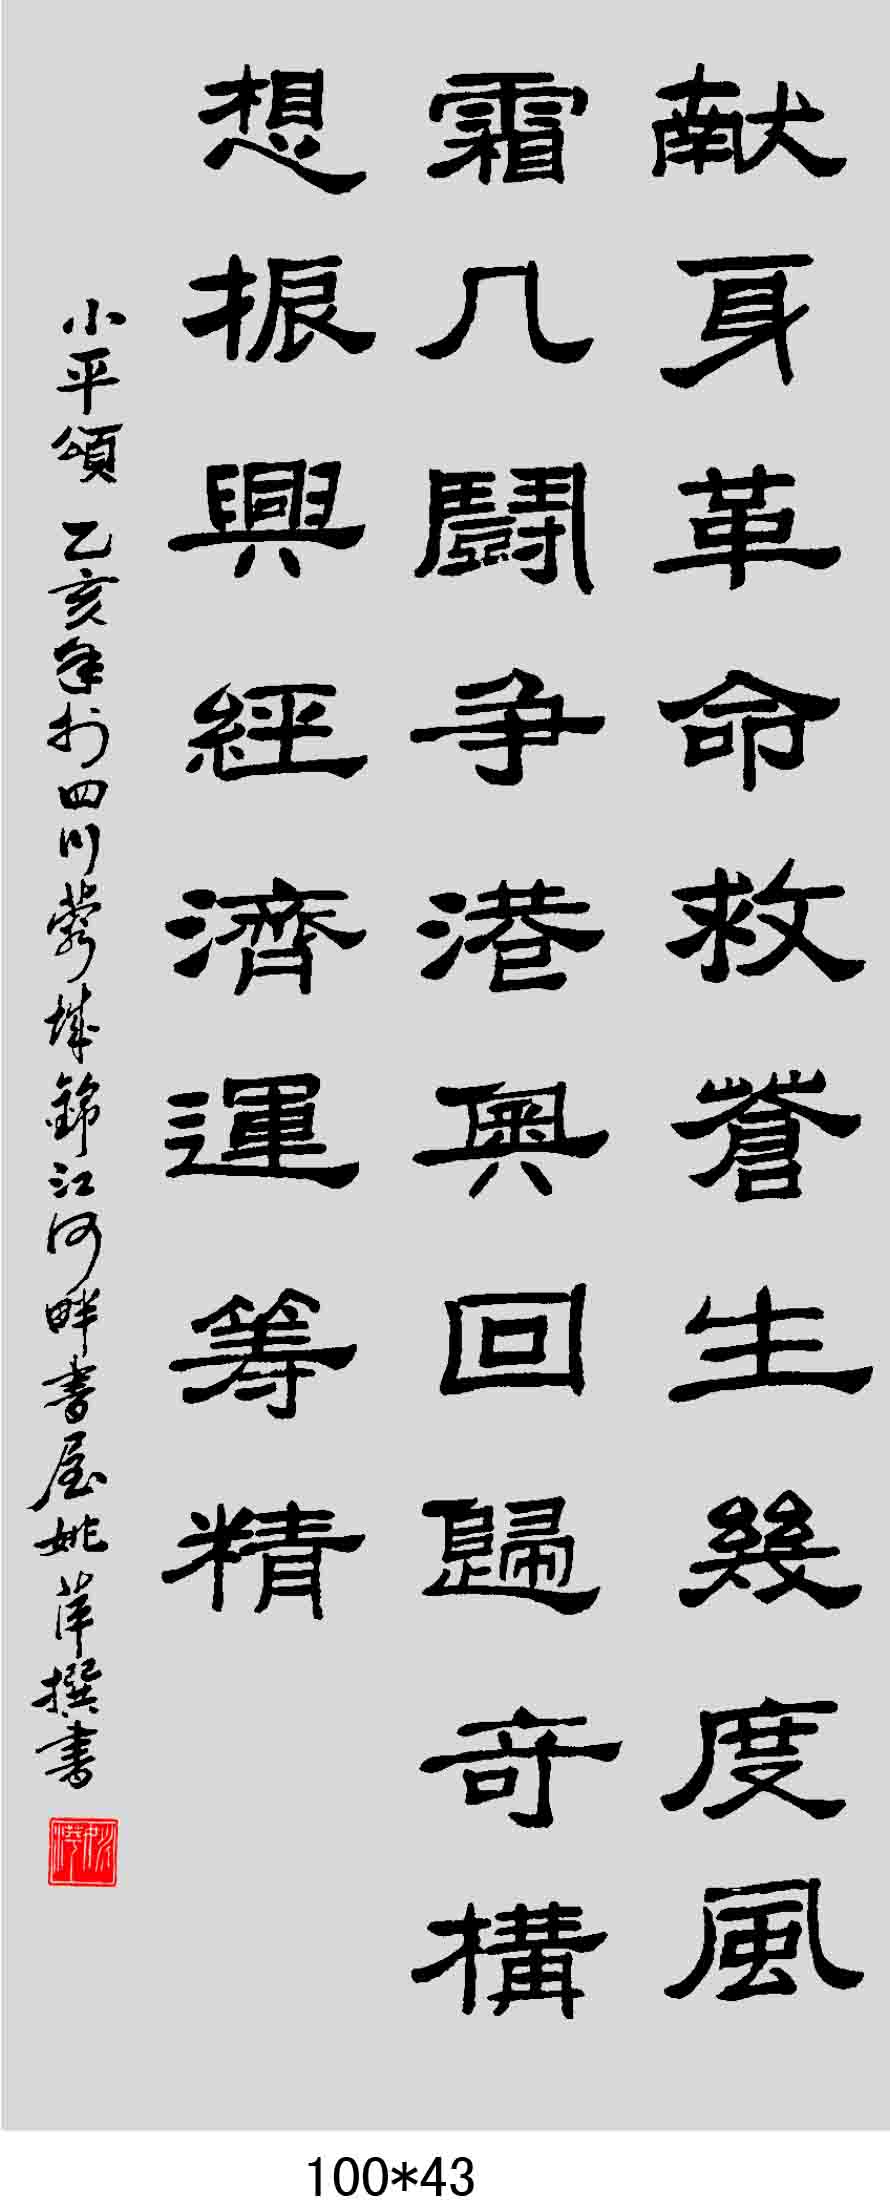 献身革命救蒼生幾度風
霜几鬪争港奥回歸奇構
想振興經濟運筹精
小平頌 乙亥年於四川蓉城錦江河畔書屋姚萍撰書
100*43